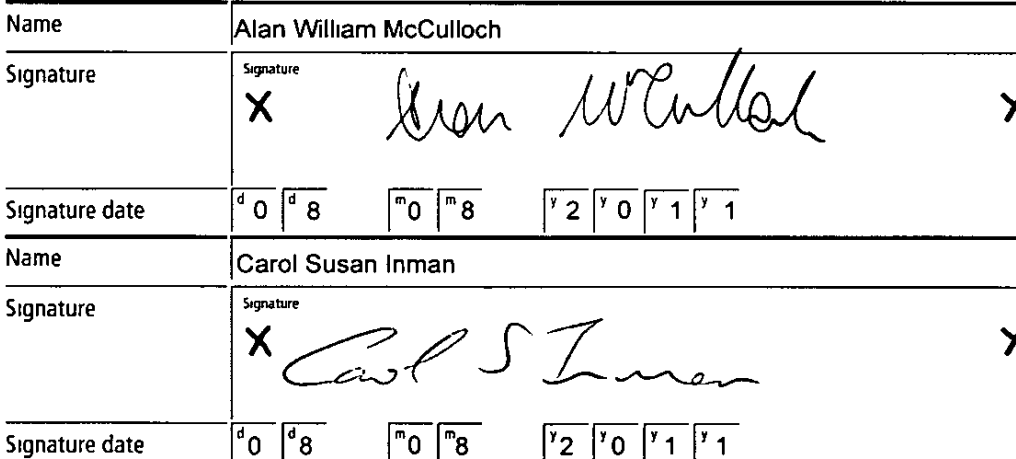 Name Alan William McCulloch
Signature Signature
X Alan McCulloch X
Signature date d 0 d 8 m 0 m 8 y 2 y 0 y 1 y 1
Name Carol Susan Inman
Signature Signature
X Carol S Inman X
Signature date d 0 d 8 m 0 m 8 y 2 y 0 y 1 y 1